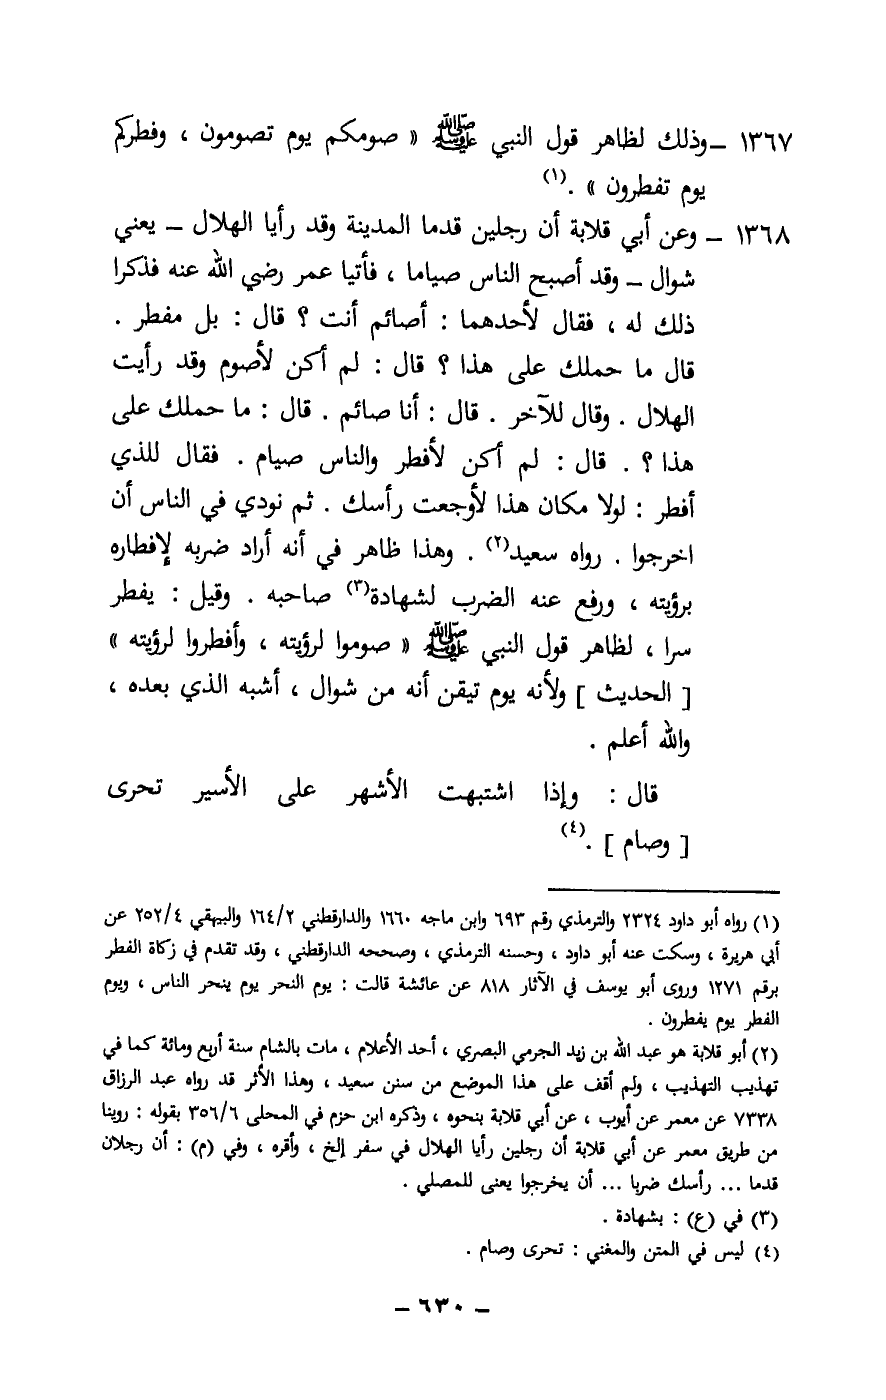 ١٣٦٧ ــ وذلك لظاهر قول النبي ﷺ « صومكم يوم تصومون ، وفطركم
يوم تفطرون » .(١)
١٣٦٨ ــ وعن أبي قلابة أن رجلين قدما المدينة وقد رأيا الهلال ــ يعني
شوال ــ وقد أصبح الناس صياما ، فأتيا عمر رضي الله عنه فذكرا
ذلك له ، فقال لأحدهما : أصائم أنت ؟ قال : بل مفطر .
قال ما حملك على هذا ؟ قال : لم أكن لأصوم وقد رأيت
الهلال . وقال للآخر . قال : أنا صائم . قال : ما حملك على
هذا ؟ . قال : لم أكن لأفطر والناس صيام . فقال للذي
أفطر : لولا مكان هذا لأوجعت رأسك . ثم نودي في الناس أن
اخرجوا . رواه سعيد(٢) . وهذا ظاهر في أنه أراد ضربه لإفطاره
برؤيته ، ورفع عنه الضرب لشهادة(٣) صاحبه . وقيل : يفطر
سرا ، لظاهر قول النبي ﷺ « صوموا لرؤيته ، وأفطروا لرؤيته »
[ الحديث ] ولأنه يوم تيقن أنه من شوال ، أشبه الذي بعده ،
والله أعلم .
قال : وإذا اشتبهت الأشهر على الأسير تحرى
[ وصام ] .(٤)
(١) رواه أبو داود ٢٣٢٤ والترمذي رقم ٦٩٣ وابن ماجه ١٦٦٠ والدارقطني ١٦٤/٢ والبيهقي ٢٥٢/٤ عن
أبي هريرة ، وسكت عنه أبو داود ، وحسنه الترمذي ، وصححه الدارقطني ، وقد تقدم في زكاة الفطر
برقم ١٢٧١ وروى أبو يوسف في الآثار ٨١٨ عن عائشة قالت : يوم النحر يوم ينحر الناس ، ويوم
الفطر يوم يفطرون .
(٢) أبو قلابة هو عبد الله بن زيد الجرمي البصري ، أحد الأعلام ، مات بالشام سنة أربع ومائة كما في
تهذيب التهذيب ، ولم أقف على هذا الموضع من سنن سعيد ، وهذا الأثر قد رواه عبد الرزاق
٧٣٣٨ عن معمر عن أيوب ، عن أبي قلابة بنحوه ، وذكره ابن حزم في المحلى ٣٥٦/٦ بقوله : روينا
من طريق معمر عن أبي قلابة أن رجلين رأيا الهلال في سفر إلخ ، وأقره ، وفي (م) : أن رجلان
قدما ... رأسك ضربا ... أن يخرجوا يعنى للمصلي .
(٣) في (ع) : بشهادة .
(٤) ليس في المتن والمغني : تحرى وصام .
ــ ٦٣٠ ــ